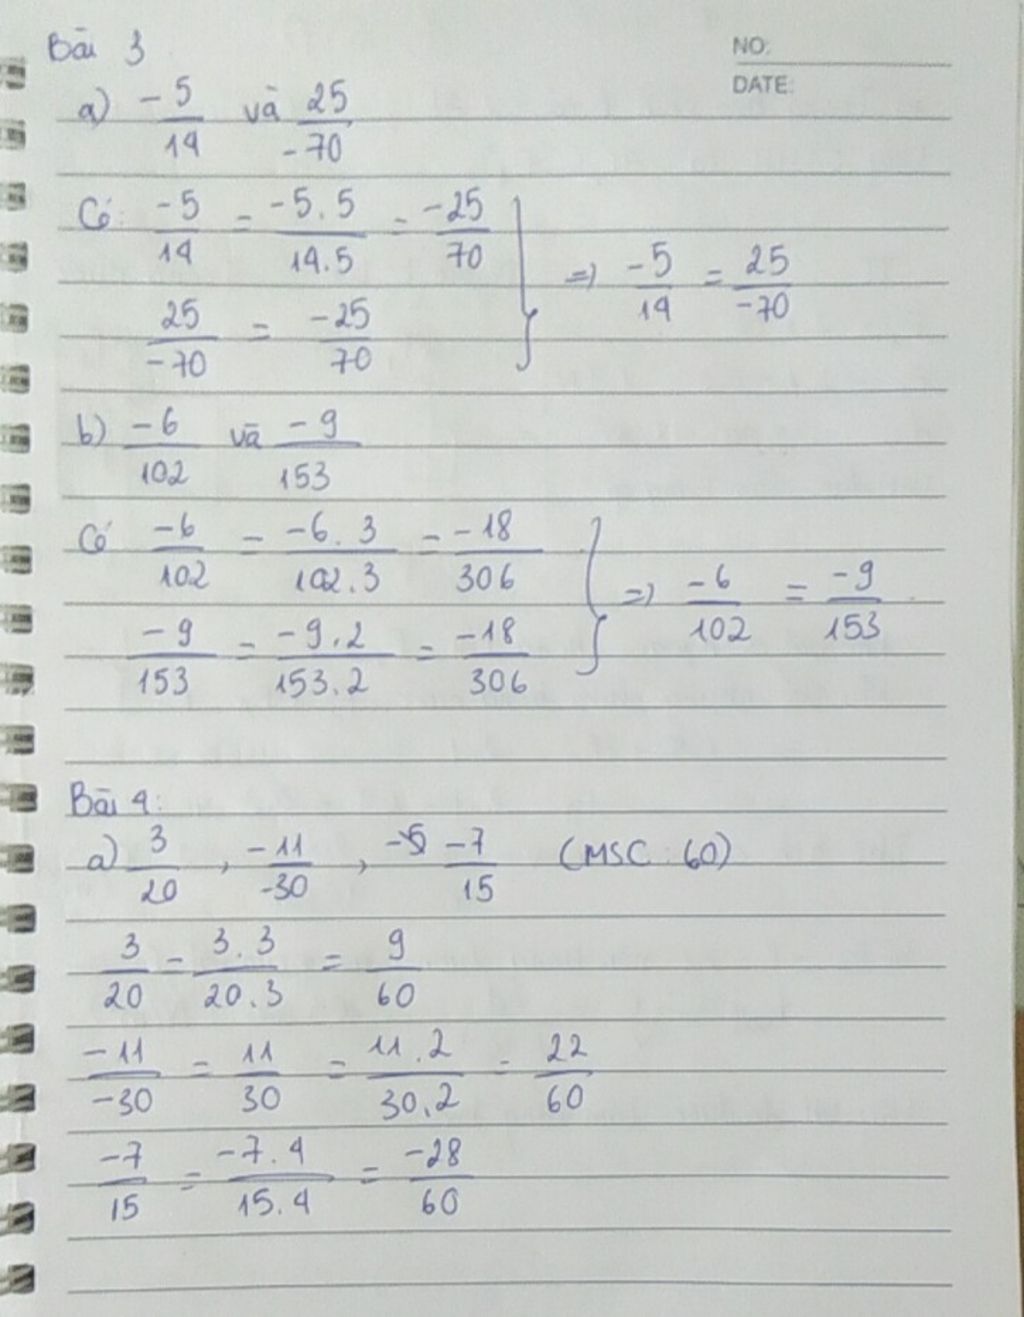 Bài 3
NO:
DATE:
a) -5/14 và 25/-70
Có: -5/14 = -5.5/14.5 = -25/70
25/-70 = -25/70
} => -5/14 = 25/-70
b) -6/102 và -9/153
Có -6/102 = -6.3/102.3 = -18/306
-9/153 = -9.2/153.2 = -18/306
} => -6/102 = -9/153
Bài 4:
a) 3/20 , -11/-30 , -7/15 (MSC: 60)
3/20 = 3.3/20.3 = 9/60
-11/-30 = 11/30 = 11.2/30.2 = 22/60
-7/15 = -7.4/15.4 = -28/60